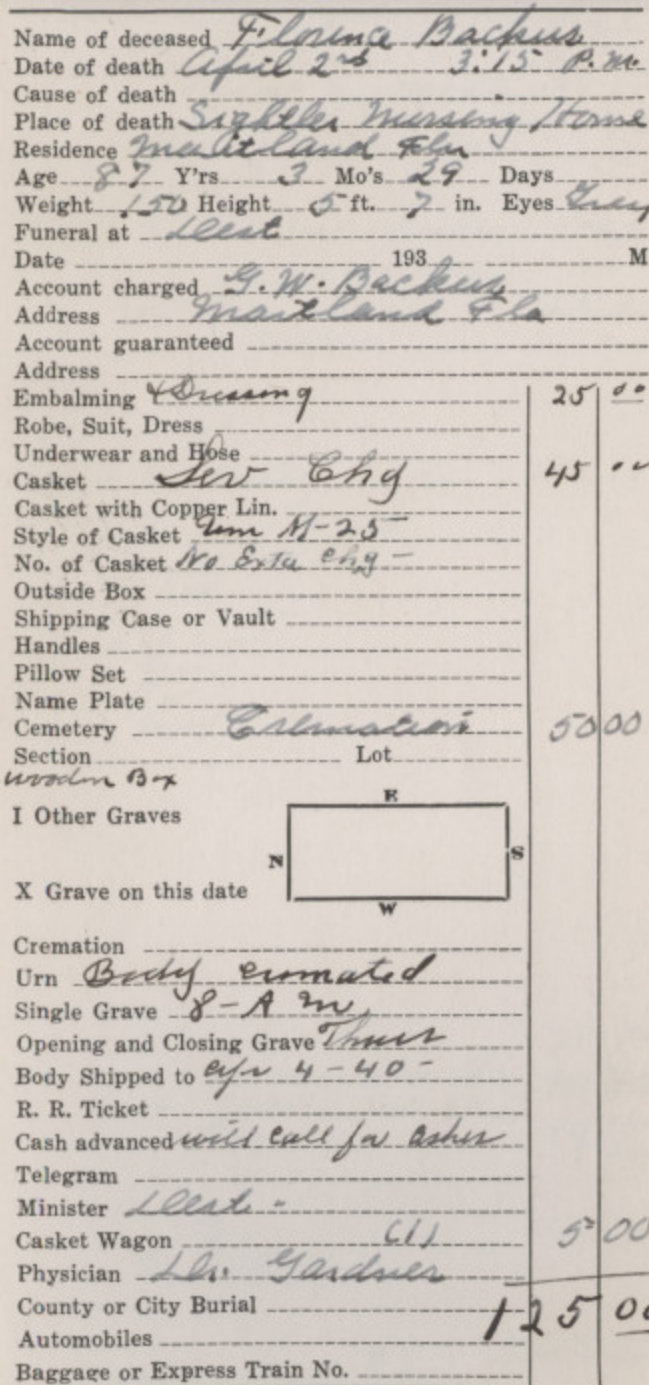 Name of deceased Florence Backus
Date of death April 2nd 3:15 P.M.
Cause of death
Place of death Sightler Nursing Home
Residence Maitland Fla
Age 87 Y'rs 3 Mo's 29 Days
Weight 150 Height 5 ft. 7 in. Eyes Gray
Funeral at
Date 193 M
Account charged G. W. Backus
Address Maitland Fla
Account guaranteed
Address
Embalming & Dressing 25 00
Robe, Suit, Dress
Underwear and Hose
Casket Serv Chg 45 00
Casket with Copper Lin.
Style of Casket M-25
No. of Casket No Extra chg -
Outside Box
Shipping Case or Vault
Handles
Pillow Set
Name Plate
Cemetery Cremation 50 00
Section Lot
wooden Box
I Other Graves
E
N
S
X Grave on this date
W
Cremation
Urn Body cremated
Single Grave 8 - A m
Opening and Closing Grave Thurs
Body Shipped to Apr 4-40 -
R. R. Ticket
Cash advanced will call for ashes
Telegram
Minister
Casket Wagon (1) 5 00
Physician Dr. Gardner
County or City Burial 125 00
Automobiles
Baggage or Express Train No.